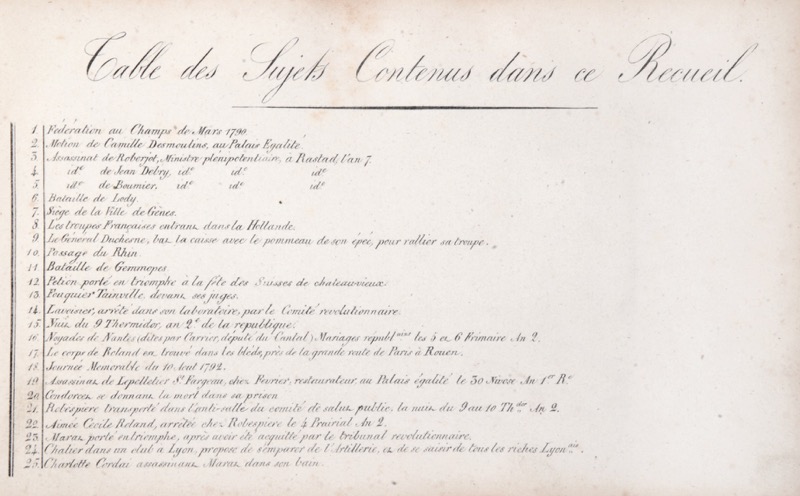 Table des Sujets Contenus dans ce Recueil.
1. Fédération au Champs de Mars 1790
2. Motion de Camille Desmoulins, au Palais Egalité
3. Assasinat de Roberjot, Ministre plénipotentiaire, à Rastad, l'an 7.
4. id.º de Jean Debry, id.º id.º id.º
5. id.º de Bonnier, id.º id.º id.º
6. Bataille de Lody.
7. Siège de la Ville de Gènes.
8. Les troupes Françaises entrant dans la Hollande.
9. Le Général Duchesne, bat la caisse avec le pommeau de son épée, pour rallier sa troupe.
10. Passage du Rhin.
11. Bataille de Gemmopes.
12. Petion porté en triomphe à la fête des Suisses de chateauvieux.
13. Fouquier Tainville, devant ses juges.
14. Lavoisier, arrêté dans son laboratoire, par le Comité revolutionnaire.
15. Nuit du 9 Thermidor, an 2.e de la republique.
16. Noyades de Nantes (dites par Carrier, député du Cantal) Mariages républ.ains les 5 et 6 Frimaire An 2.
17. Le corps de Roland est trouvé dans les bléds, près de la grande route de Paris à Rouen.
18. Journée Memorable du 10 Aout 1792.
19. Assassinat de Lepelletier S.t Fargeau, chez Fevrier, restaurateur au Palais égalité le 30 Nivose An 1.er R.e
20. Condorcet se donnant la mort dans sa prison
21. Robespiere transporté dans l'anti-salle du comité de salut public, la nuit du 9 au 10 Th.dor An 2.
22. Aimée Cecile Roland, arrêtée chez Robespiere le 4 Prairial An 2.
23. Marat porté en triomphe, après avoir été acquitté par le tribunal revolutionnaire.
24. Chalier dans un club à Lyon, propose de s'emparer de l'Artillerie, et de se saisir de tous les riches Lyon.ais.
25. Charlotte Cordai assassinant Marat dans son bain.